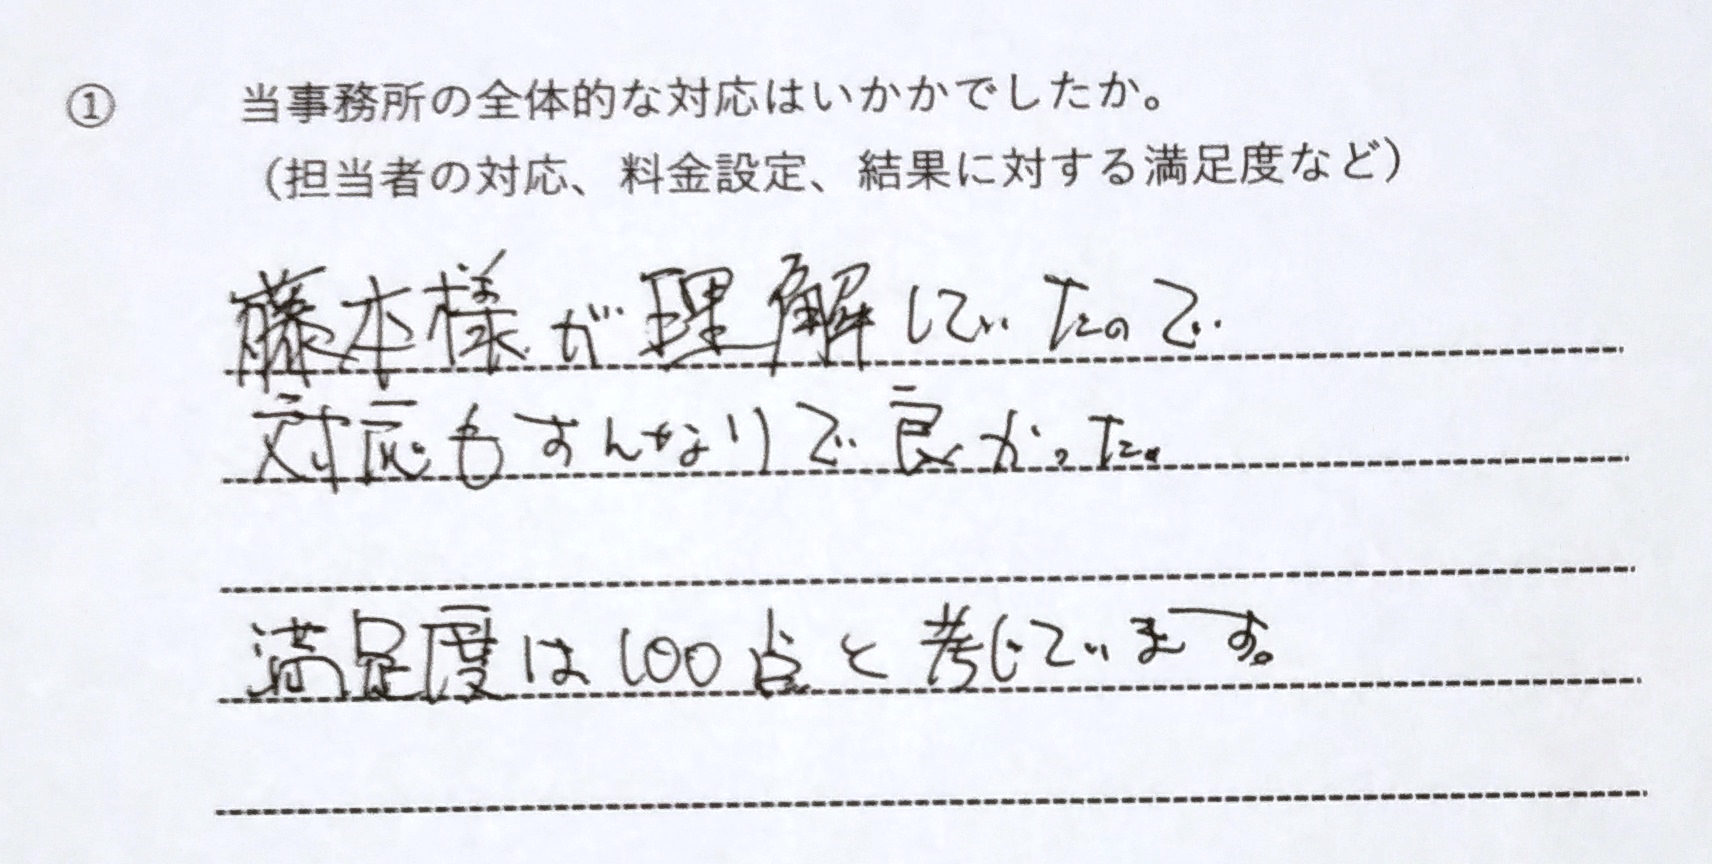 ① 当事務所の全体的な対応はいかかでしたか。
（担当者の対応、料金設定、結果に対する満足度など）
藤本様が理解していたので
対応もすんなりで良かった。
満足度は100点と考じています。